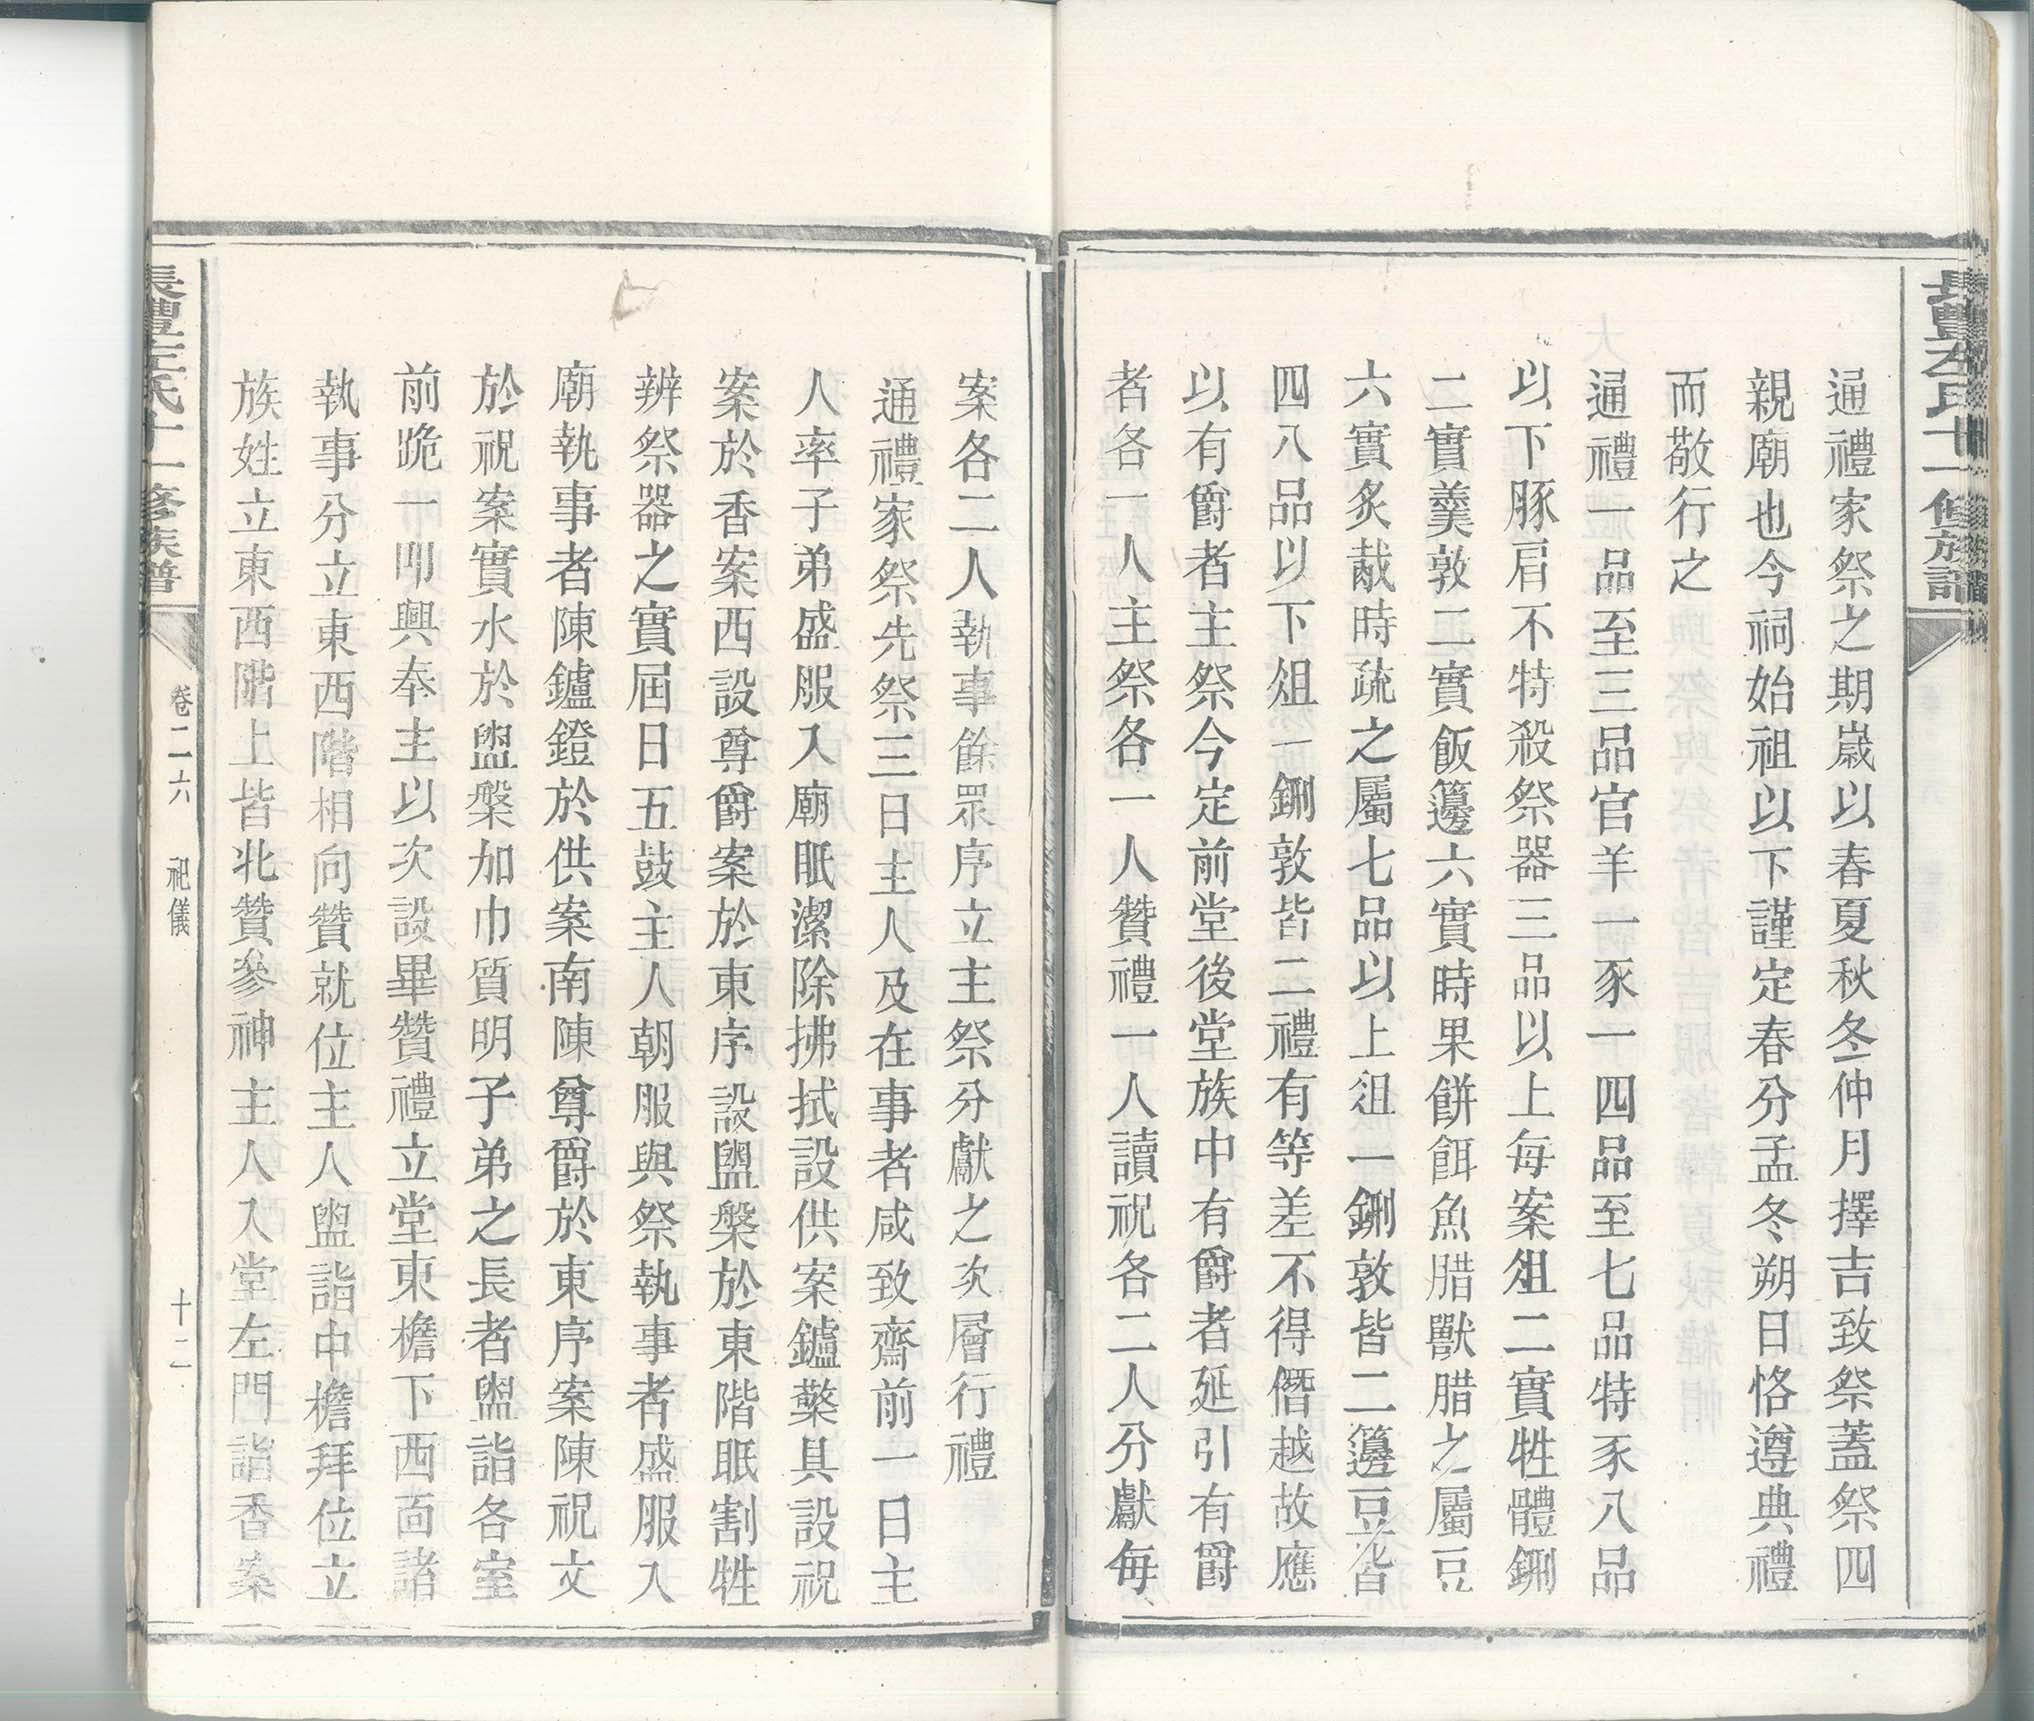 長豐左氏十一修族譜
通禮家祭之期歲以春夏秋冬仲月擇吉致祭蓋祭四
親廟也今祠始祖以下謹定春分孟冬朔日恪遵典禮
而敬行之
通禮一品至三品官羊一豕一四品至七品特豕八品
以下豚肩不特殺祭器三品以上每案俎二實牲體鉶
二實羹敦二實飯籩六實時果餅餌魚腊獸腊之屬豆
六實炙胾時疏之屬七品以上俎一鉶敦皆二籩豆皆
四八品以下俎一鉶敦皆二禮有等差不得僭越故應
以有爵者主祭今定前堂後堂族中有爵者延引有爵
者各一人主祭各一人贊禮一人讀祝各二人分獻每
案各二人執事餘眾序立主祭分獻之次層行禮
通禮家祭先祭三日主人及在事者咸致齋前一日主
人率子弟盛服入廟眂潔除拂拭設供案鑪檠具設祝
案於香案西設尊爵案於東序設盥槃於東階眂割牲
辨祭器之實屆日五鼓主人朝服與祭執事者盛服入
廟執事者陳鑪鐙於供案南陳尊爵於東序案陳祝文
於祝案實水於盥槃加巾質明子弟之長者盥詣各室
前跪一叩興奉主以次設畢贊禮立堂東檐下西面諸
執事分立東西階相向贊就位主人盥詣中檐拜位立
族姓立東西階上皆北贊參神主人入堂左門詣香案
長豐左氏十一修族譜
卷二六 祀儀
十二